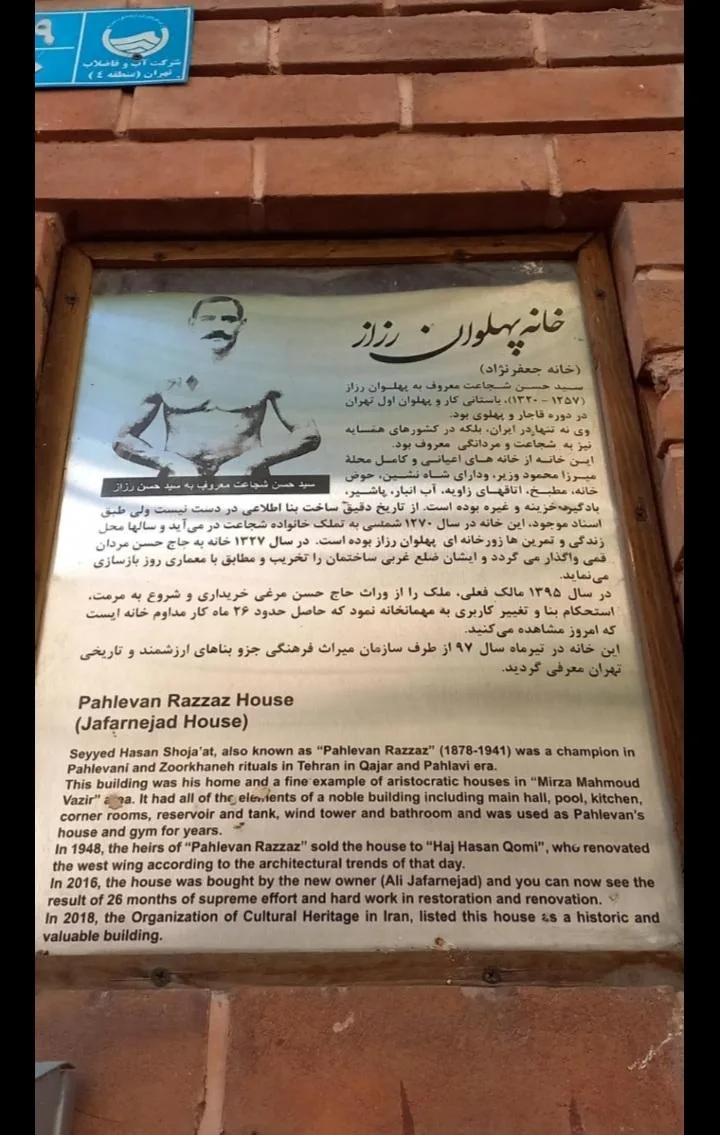 ۹
شرکت آب و فاضلاب
تهران (منطقه ٤)
خانه پهلوان رزاز
(خانه جعفرنژاد)
سید حسن شجاعت معروف به پهلوان رزاز
(۱۲۵۷ - ۱۳۲۰)، باستانی کار و پهلوان اول تهران
در دوره قاجار و پهلوی بود.
وی نه تنها در ایران، بلکه در کشورهای همسایه
نیز به شجاعت و مردانگی معروف بود.
این خانه از خانه های اعیانی و کامل محلهٔ
میرزا محمود وزیر، ودارای شاه نشین، حوض
خانه، مطبخ، اتاقهای زاویه، آب انبار، پاشیر،
سید حسن شجاعت معروف به سید حسن رزاز
بادگیر، خزینه و غیره بوده است. از تاریخ دقیق ساخت بنا اطلاعی در دست نیست ولی طبق
اسناد موجود، این خانه در سال ۱۲۷۰ شمسی به تملک خانواده شجاعت در می‌آید و سالها محل
زندگی و تمرین ها زورخانه ای پهلوان رزاز بوده است. در سال ۱۳۲۷ خانه به حاج حسن مردان
قمی واگذار می گردد و ایشان ضلع غربی ساختمان را تخریب و مطابق با معماری روز بازسازی
می‌نماید.
در سال ۱۳۹۵ مالک فعلی، ملک را از وراث حاج حسن مرغی خریداری و شروع به مرمت،
استحکام بنا و تغییر کاربری به مهمانخانه نمود که حاصل حدود ۲۶ ماه کار مداوم خانه ایست
که امروز مشاهده می‌کنید.
این خانه در تیرماه سال ۹۷ از طرف سازمان میراث فرهنگی جزو بناهای ارزشمند و تاریخی
تهران معرفی گردید.
Pahlevan Razzaz House
(Jafarnejad House)
Seyyed Hasan Shoja'at, also known as "Pahlevan Razzaz" (1878-1941) was a champion in
Pahlevani and Zoorkhaneh rituals in Tehran in Qajar and Pahlavi era.
This building was his home and a fine example of aristocratic houses in "Mirza Mahmoud
Vazir" area. It had all of the elements of a noble building including main hall, pool, kitchen,
corner rooms, reservoir and tank, wind tower and bathroom and was used as Pahlevan's
house and gym for years.
In 1948, the heirs of "Pahlevan Razzaz" sold the house to "Haj Hasan Qomi", who renovated
the west wing according to the architectural trends of that day.
In 2016, the house was bought by the new owner (Ali Jafarnejad) and you can now see the
result of 26 months of supreme effort and hard work in restoration and renovation.
In 2018, the Organization of Cultural Heritage in Iran, listed this house as a historic and
valuable building.